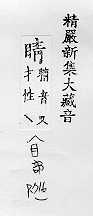 精嚴新集大藏音
晴
精音又
才性乀
八目部
P.516